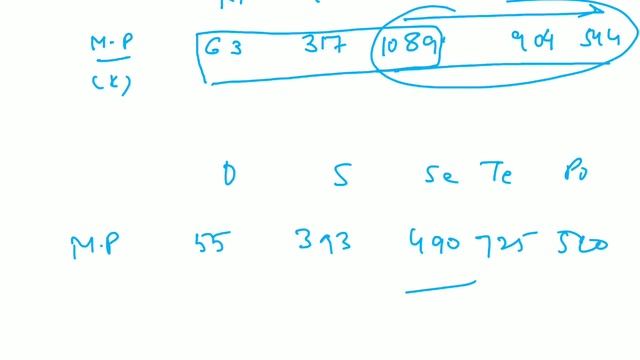 M.P 63 317 1089 904 544
(K)
O S Se Te Po
M.P 55 393 490 725 520